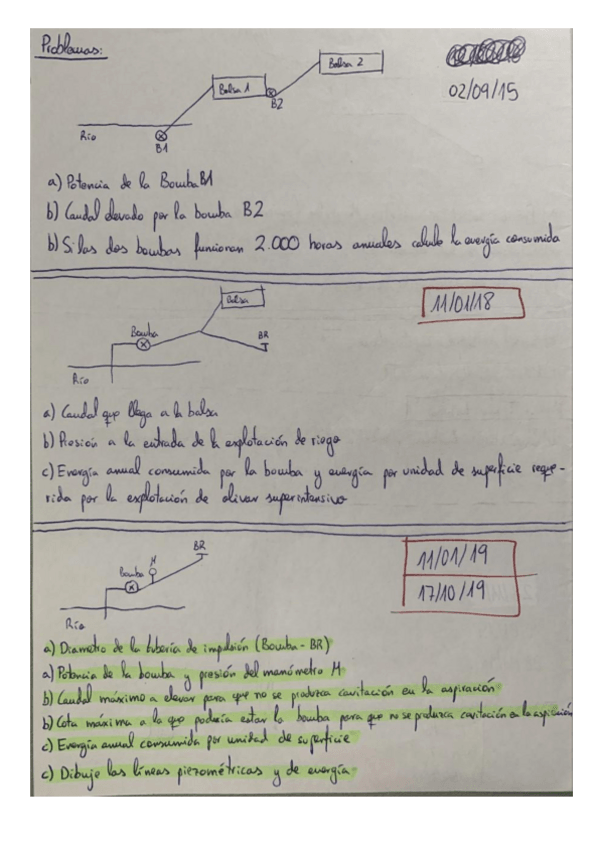 Problemas:
Balsa 2
Balsa 1
B2
02/09/15
Río
B1
a) Potencia de la Bomba B1
b) Caudal elevado por la bomba B2
b) Si las dos bombas funcionan 2.000 horas anuales calcule la energía consumida
Balsa
11/01/18
Bomba
BR
Río
a) Caudal que llega a la balsa
b) Presión a la entrada de la explotación de riego
c) Energía anual consumida por la bomba y energía por unidad de superficie reque-
rida por la explotación de olivar superintensivo
BR
M
Bomba
11/01/19
17/10/19
Río
a) Diametro de la tubería de impulsión (Bomba - BR)
a) Potencia de la bomba y presión del manómetro M
b) Caudal máximo a elevar para que no se produzca cavitación en la aspiración
b) Cota máxima a la que podría estar la bomba para que no se produzca cavitación en la aspiración
c) Energía anual consumida por unidad de superficie
c) Dibuje las líneas piezométricas y de energía